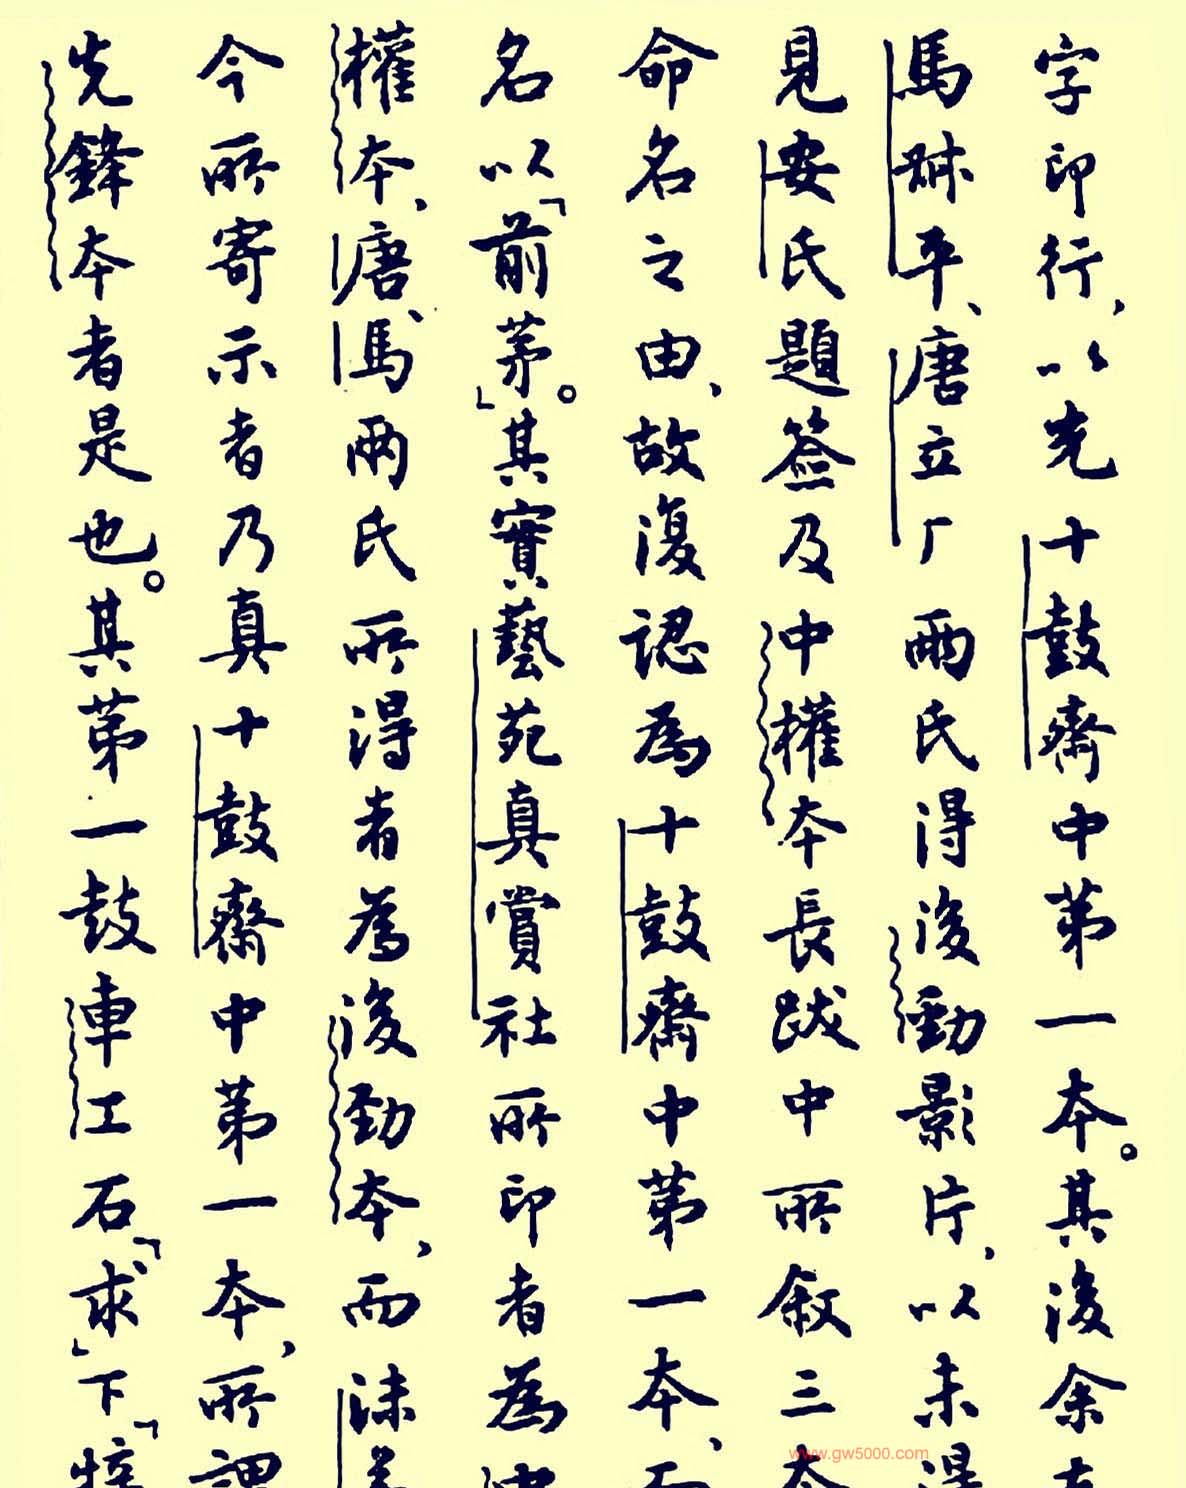 字印行，以先十鼓齋中第一本。其後余
馬𣂏平、唐立厂兩氏得後勁影片，以未得
見安氏題簽及中權本長跋中所叙三本
命名之由，故復認為十鼓齋中第一本，而
名以「前茅」。其實藝苑真賞社所印者為中
權本，唐、馬兩氏所得者為後勁本，而沬若
今所寄示者乃真十鼓齋中第一本，所謂
先鋒本者是也。其第一鼓車工石「求」下「特
www.gw5000.com